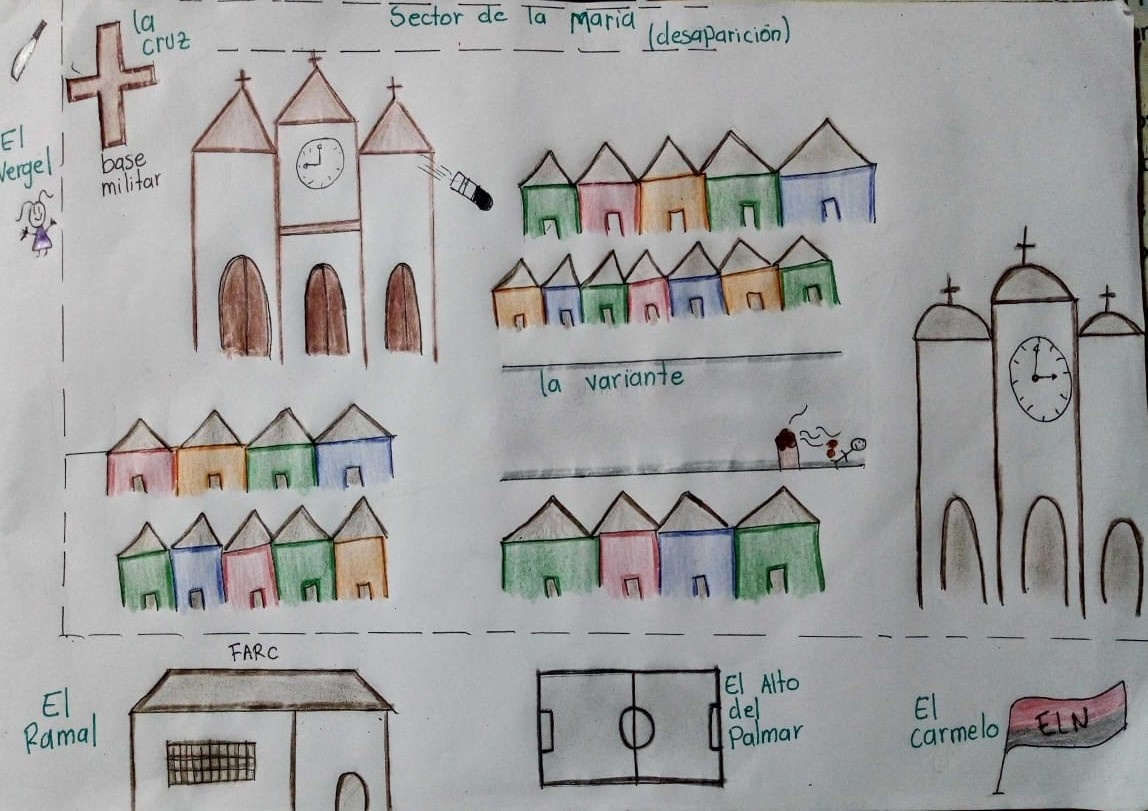 Sector de la maria (desaparición)
la
cruz
El
Vergel
base
militar
la variante
FARC
El
Ramal
El Alto
del
Palmar
El
Carmelo
ELN